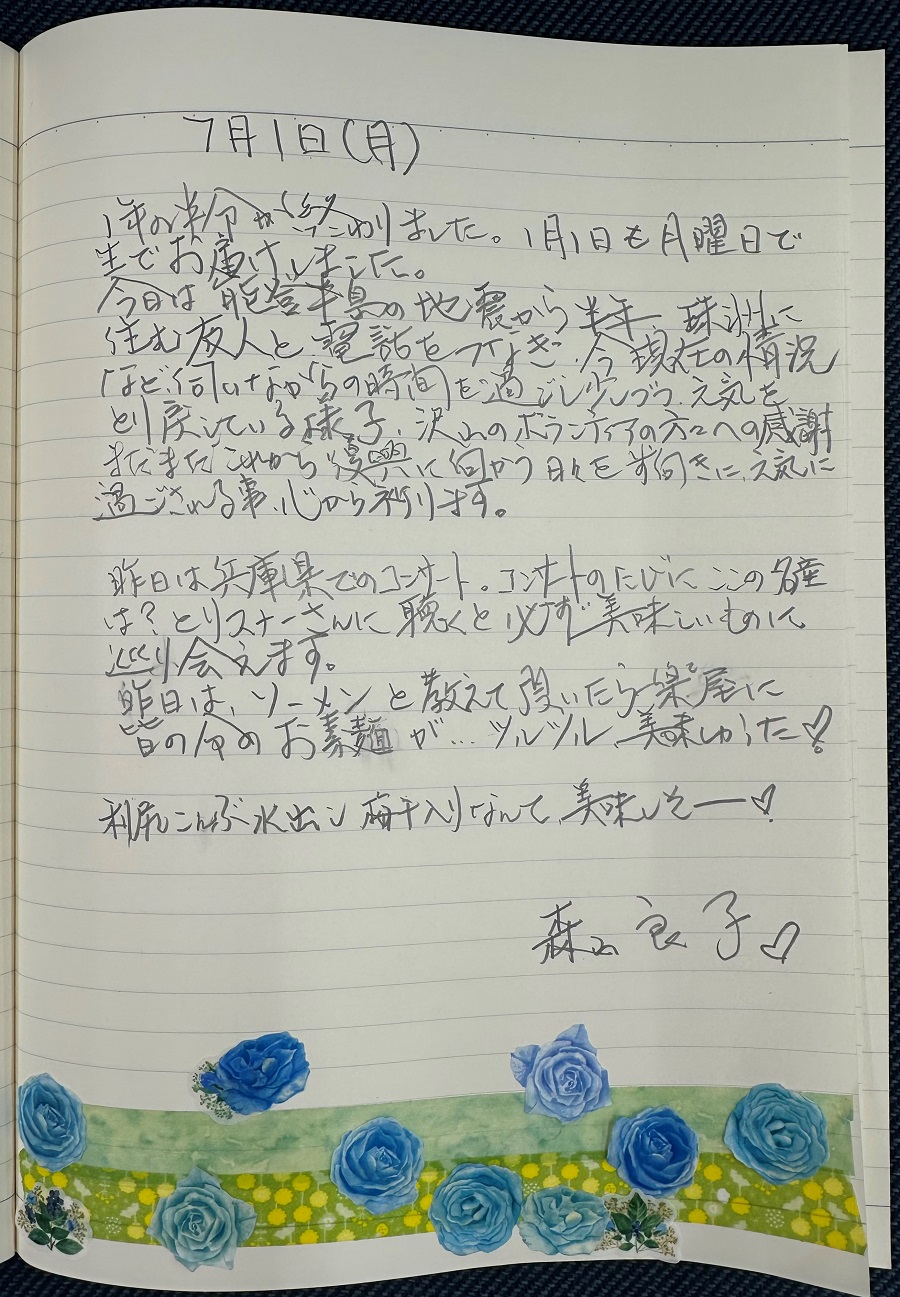 7月1日(月)
1年の半分が終わりました。1月1日も月曜日で
生でお届けしました。
今日は能登半島の地震から半年 珠洲に
住む友人と電話をつなぎ、今現在の情況
など、伺いながらの時間を過ごし少しづつ、元気を
とり戻している様子、沢山のボランティアの方々への感謝
まだまだこれから復興に向かう日々を前向きに、元気に
過ごされる事、心から祈ります。
昨日は兵庫県でのコンサート。コンサートのたびにここの名産
は?とリスナーさんに聴くと必ず美味しいものに
巡り会えます。
昨日は、ソーメンと教えて頂いたら楽屋に
皆の分のお素麺が…ツルツル、美味しかった♡。
利尻こんぶ水出し 梅干入りなんて、美味しそー♡!
森山良子♡